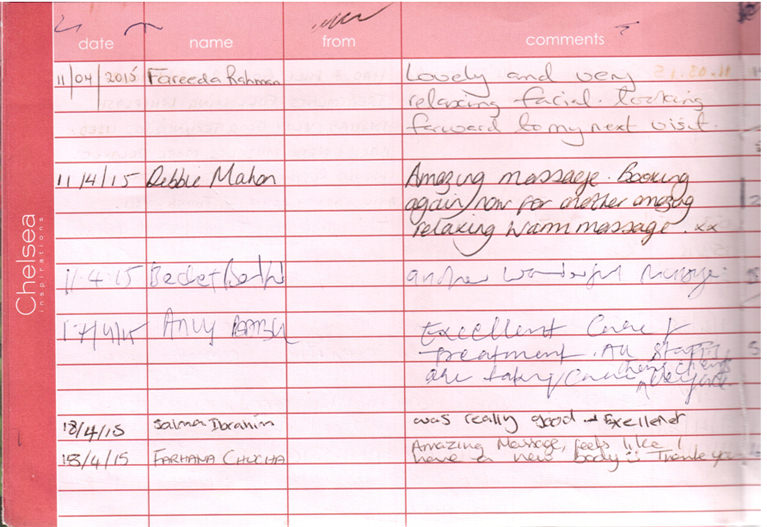 date name from comments
11/04/2015 Fareeda Rahman Lovely and very
relaxing facial. looking
forward to my next visit.
11/4/15 Debbie Mahon Amazing massage. Booking
again now for another amazing
relaxing warm massage. xx
11.4.15 another wonderful massage.
Excellent Care &
treatment. All staff
are taking
18/4/15 Salma Ibrahim was really good + Excellent
18/4/15 FARHANA CHUCHA Amazing Massage, feels like I
have a new body :) Thank you
Chelsea
inspirations